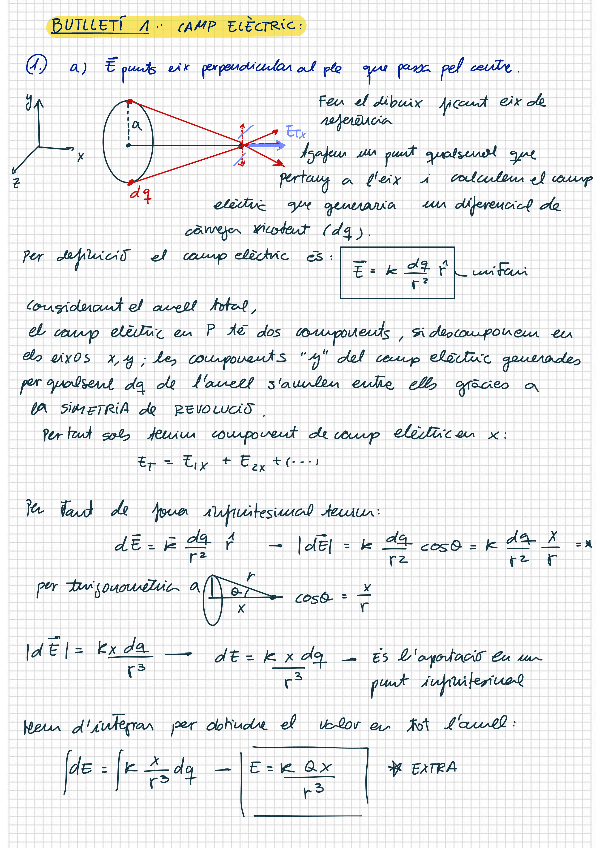 BUTLLETÍ 1.. CAMP ELÈCTRIC:
1. a) E punts eix perpendicular al ple que passa pel centre.
Fem el dibuix ficant eix de
referència
y
a
x
z
dq
E Tx
Agafem un punt qualsevol que
pertany a l'eix i calculem el camp
elèctric que generaria un diferencial de
càrrega xicotent (dq).
Per definició el camp elèctric és: E = k dq/r² r̂ unitari
Considerant el anell total,
el camp elèctric en P té dos components, si descomponem en
els eixos x, y; les components "y" del camp elèctric generades
per qualsevol dq de l'anell s'anulen entre ells gràcies a
la SIMETRIA de REVOLUCIÓ.
Per tant sols tenim component de camp elèctric en x:
E_T = E_1x + E_2x + (...)
Per tant de forma infinitesimal tenim:
dE = k dq/r² r̂ → |dE| = k dq/r² cosθ = k dq/r² x/r =*
per trigonometria a r θ x cosθ = x/r
|dE| = kx dq/r³ → dE = k x dq/r³ – És l'aportació en un
punt infinitesimal
Hem d'integrar per obtindre el valor en tot l'anell:
∫dE = ∫k x/r³ dq → E = k Q x/r³ * EXTRA